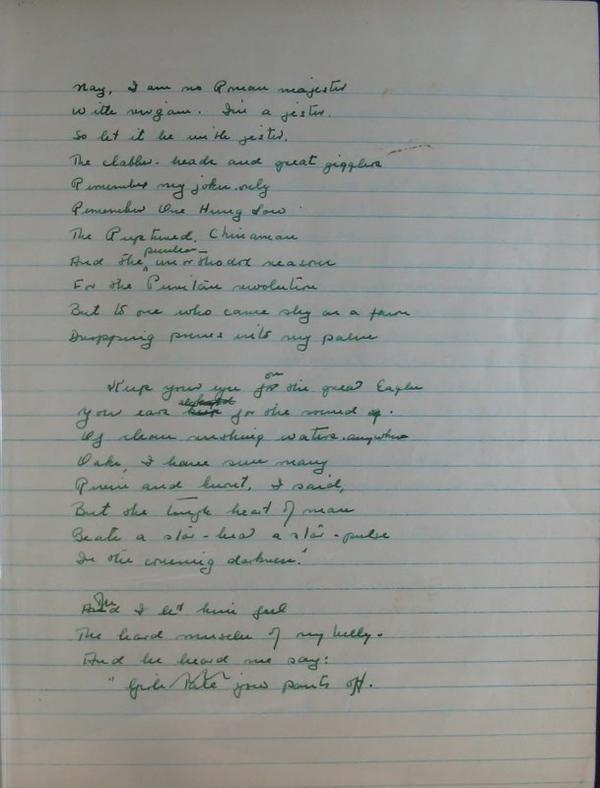 Nay, I am no Roman majester
With . I'm a jester.
So let it be with jester.
The clabber-heads and great gigglers
Remember my jokes only
Remember One Hung Low
The Ruptured, Chinaman
And the peculiar unorthodox reasons
For the Puritan revolution
But to one who came shy as a fawn
Dropping poems into my palm
Keep your eyes on the great Eagles
Your ears for the sound
Of clean rushing waters anywhere
Oaks, I have seen many
Ruin and burst, I said,
But the tough heart of man
Beats a star-beat a star-pulse
In the coming darkness."
Then I let him feel
The hard muscles of my belly.
And he heard me say:
" your pants off.